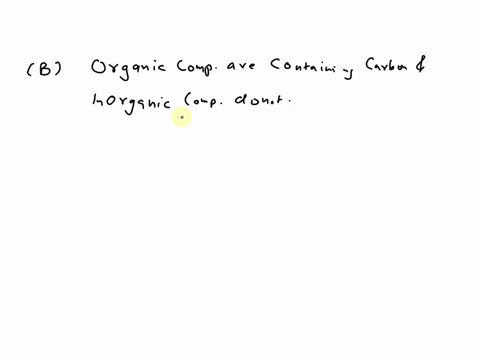 (B) Organic Comp. are Containing Carbon &
Inorganic Comp. donot.